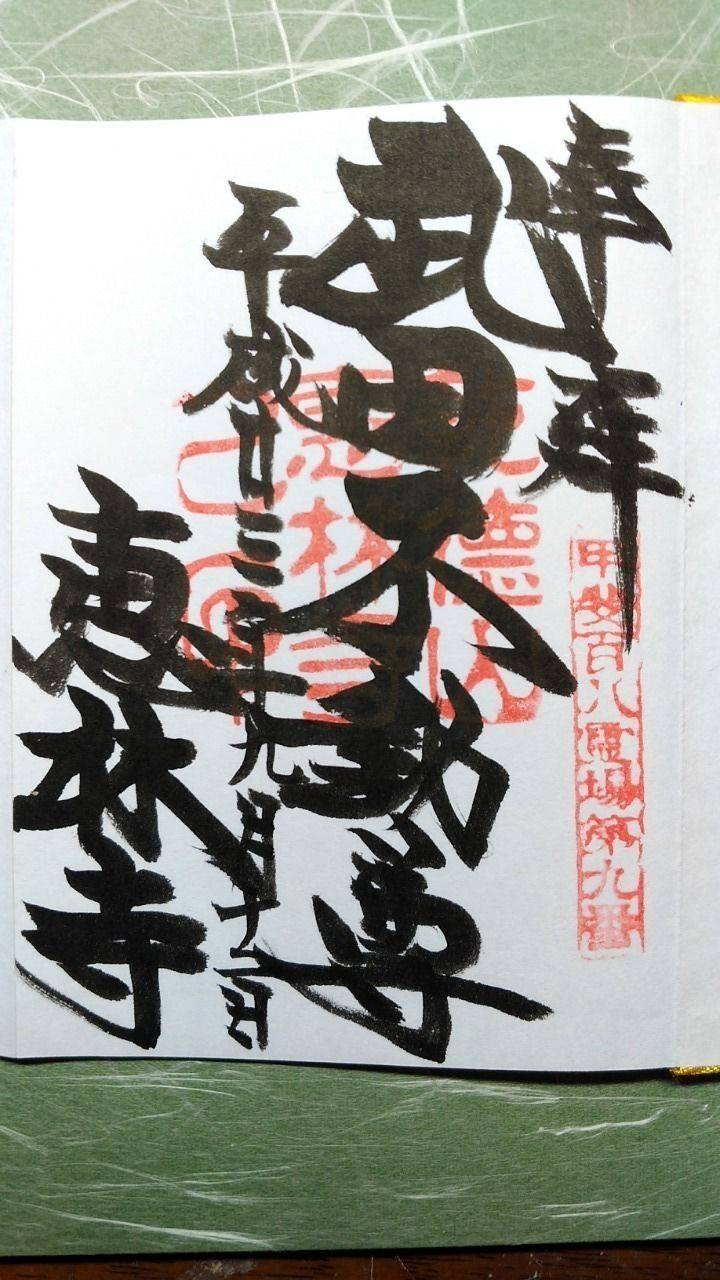 奉拝
甲斐百八霊場第九番
武田不動尊
平成廿三年九月十日
恵林寺
徳山
恵林寺